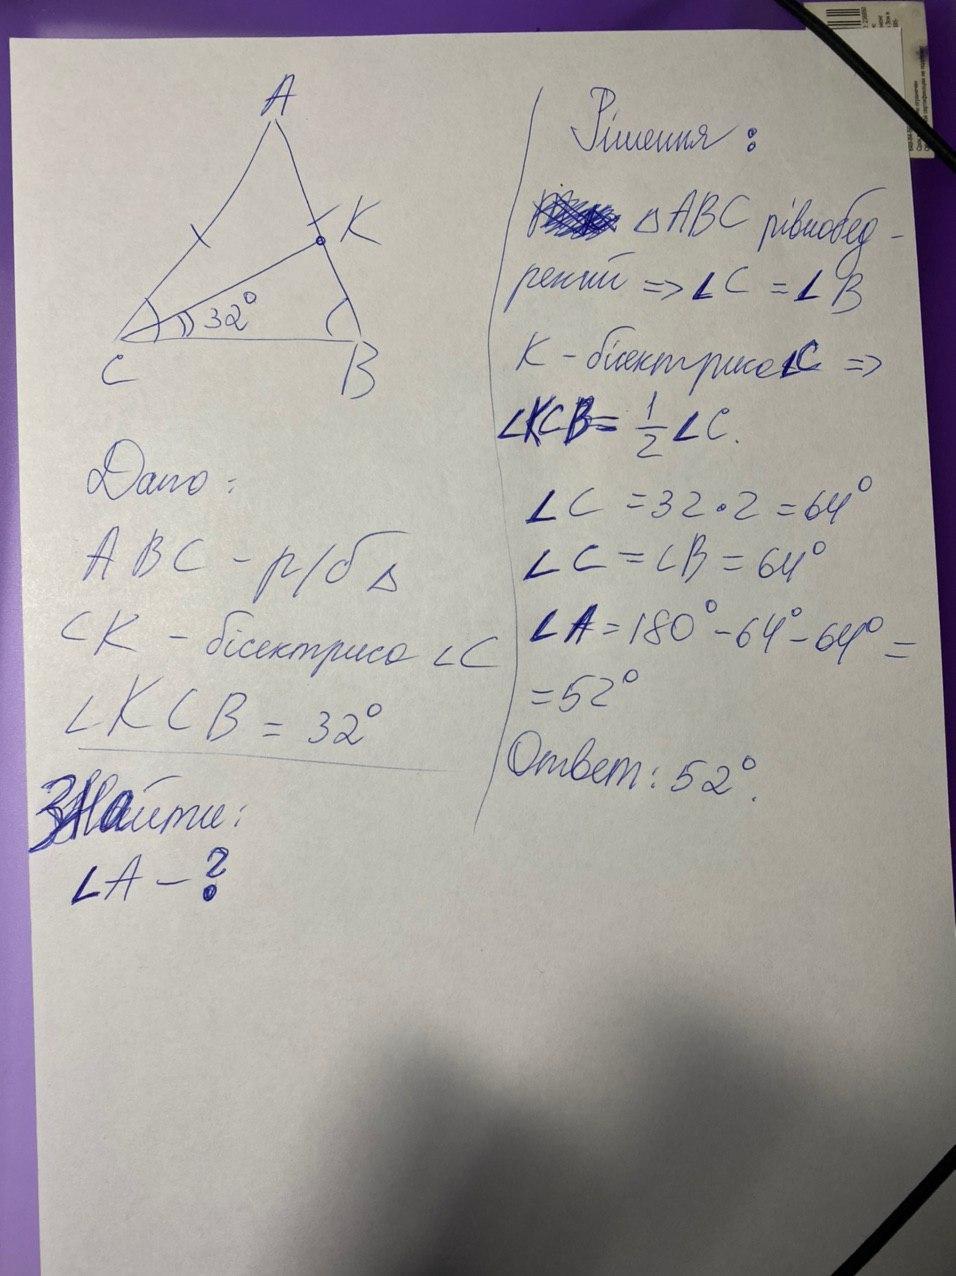 A
K
32°
C
B
Дано:
ABC - р/б Δ
CK - бісектриса ∠C
∠KCB = 32°
Знайти:
∠A - ?
Рішення:
ΔABC рівнобед-
рений => ∠C = ∠B
K - бісектриса ∠C =>
∠KCB = 1/2 ∠C.
∠C = 32·2 = 64°
∠C = ∠B = 64°
∠A = 180° - 64° - 64° =
= 52°
Ответ: 52°.